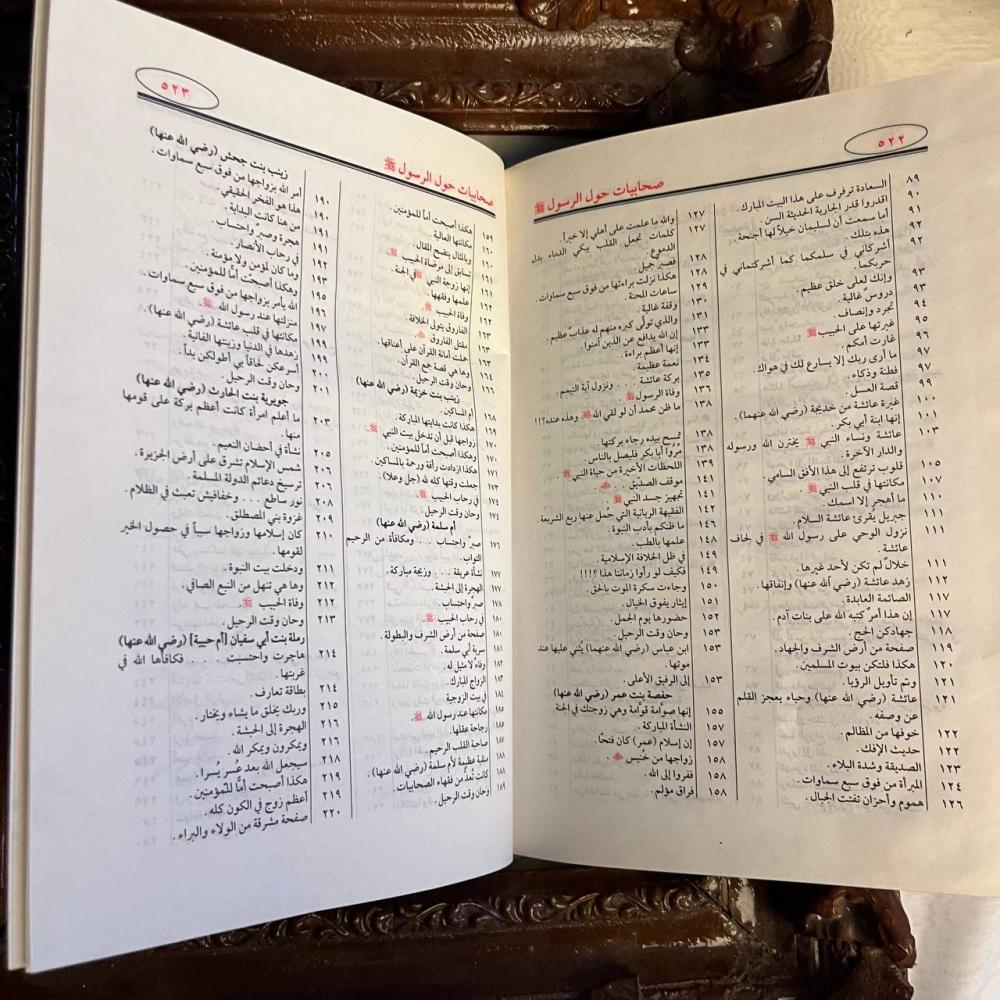 ٥٢٢
صحابيات حول الرسول ﷺ
السعادة ترفرف على هذا البيت المبارك . ٨٩
اقدروا قدر الجارية الحديثة السن . ٩٠
أما سمعت أن لسليمان خيلاً لها أجنحة . ٩١
هذه بتلك . ٩٢
أشركاني في سلمكما كما أشركتماني في ٩٢
حربكما .
وإنك لعلى خلق عظيم . ٩٣
دروس غالية . ٩٣
تجرد وإنصاف . ٩٤
غيرتها على الحبيب ﷺ . ٩٥
غارت أمكم . ٩٦
ما أرى ربك إلا يسارع لك في هواك . ٩٧
فطنة وذكاء . ٩٧
قصة العسل . ٩٩
غيرة عائشة من خديجة (رضي الله عنهما) . ١٠٠
إنها ابنة أبي بكر . ١٠١
عائشة ونساء النبي ﷺ يخترن الله ورسوله ١٠٣
والدار الآخرة .
قلوب ترتفع إلى هذا الأفق السامي . ١٠٥
مكانتها في قلب النبي ﷺ . ١٠٧
ما أهجر إلا اسمك . ١١٠
جبريل يقرئ عائشة السلام . ١١١
نزول الوحي على رسول الله ﷺ في لحاف ١١١
عائشة .
خلالٌ لم تكن لأحد غيرها . ١١١
زهد عائشة (رضي الله عنها) وإنفاقها . ١١٢
الصائمة العابدة . ١١٧
إن هذا أمرٌ كتبه الله على بنات آدم . ١١٧
جهادكن الحج . ١١٨
صفحة من أرض الشرف والجهاد . ١١٩
هكذا فلتكن بيوت المسلمين . ١٢٠
وتم تأويل الرؤيا . ١٢١
عائشة (رضي الله عنها) وحياء يعجز القلم ١٢١
عن وصفه .
خوفها من المظالم . ١٢٢
حديث الإفك . ١٢٢
الصديقة وشدة البلاء . ١٢٣
المبرأة من فوق سبع سماوات . ١٢٤
هموم وأحزان تفتت الجبال . ١٢٦
والله ما علمت على أهلي إلا خيراً . ١٢٧
كلمات تجعل القلب يبكي الدماء بدل ١٢٧
الدموع .
فصبرٌ جميل . ١٢٨
هكذا نزلت براءتها من فوق سبع سماوات . ١٢٨
ساعات المحنة . ١٢٩
وقفة غالية . ١٣١
والذي تولى كبره منهم له عذابٌ عظيم . ١٣١
إن الله يدافع عن الذين آمنوا . ١٣٣
إنها أعظم براءة . ١٣٣
نعمة عظيمة . ١٣٤
بركة عائشة . . . ونزول آية التيمم . ١٣٥
وفاة الرسول ﷺ . ١٣٦
ما ظن محمد أن لو لقي الله ﷻ وهذه عنده؟!! ١٣٨
تمسح بيده رجاء بركتها . ١٣٨
مُروا أبا بكر فليصل بالناس . ١٣٨
اللحظات الأخيرة من حياة النبي ﷺ . ١٣٩
موقف الصديق . . . ١٤١
تجهيز جسد النبي ﷺ . ١٤١
الفقيهة الربانية التي حُمل عنها ربع الشريعة . ١٤٢
ما ظنكم بأدب النبوة . ١٤٦
علمها بالطب . ١٤٨
في ظل الخلافة الإسلامية . ١٤٩
فكيف لو رأوا زماننا هذا؟!!! ١٤٩
وجاءت سكرة الموت بالحق . ١٥٠
إيثار يفوق الخيال . ١٥١
حضورها يوم الجمل . ١٥٢
وحان وقت الرحيل . ١٥٣
ابن عباس (رضي الله عنهما) يُثني عليها عند ١٥٣
موتها .
إلى الرفيق الأعلى . ١٥٣
حفصة بنت عمر (رضي الله عنها)
إنها صوّامة قوّامة وهي زوجتك في الجنة ١٥٥
النشأة المباركة . ١٥٧
إن إسلام (عمر) كان فتحًا . ١٥٧
زواجها من خُنيس . ١٥٨
ففروا إلى الله . ١٥٨
فراق مؤلم . ١٥٨
٥٢٣
صحابيات حول الرسول ﷺ
هكذا أصبحت أماً للمؤمنين . ١٥٩
مكانتها العالية . ١٦٠
وبالمثال يتضح المقال . ١٦٠
تسابق إلى مرضاة الحبيب ﷺ . ١٦١
إنها زوجة النبي ﷺ في الجنة . ١٦١
علمها وفقهها . ١٦٢
وفاة الحبيب ﷺ .
الفاروق يتولى الخلافة . ١٦٢
مقتل الفاروق . ١٦٣
حملت أمانة القرآن على أعناقها . ١٦٣
وها هي قصة جمع القرآن . ١٦٤
وحان وقت الرحيل . ١٦٦
زينب بنت خزيمة (رضي الله عنها)
أم المساكين . ١٦٨
هكذا كانت بدايتها المباركة . ١٦٩
زواجها قبل أن تدخل بيت النبي ﷺ . ١٧٠
وهكذا أصبحت أماً للمؤمنين . ١٧٠
هكذا ازدادت رأفة ورحمة بالمساكين . ١٧١
جعلت وقتها كله لله (جل وعلا) . ١٧٣
في رحاب الحبيب ﷺ . ١٧٤
وحان وقت الرحيل . ١٧٤
أم سلمة (رضي الله عنها)
صبرٌ واحتساب . . . ومكافأة من الرحيم ١٧٦
التواب .
نشأة عريقة . . . وزيجة مباركة . ١٧٧
الهجرة إلى الحبشة . ١٧٧
صبر واحتساب . ١٧٨
في رحاب الحبيب ﷺ . ١٨٠
صفحة من أرض الشرف والبطولة . ١٨٠
سرية أبي سلمة . ١٨١
وفاءٌ لا مثيل له . ١٨٢
الزواج المبارك . ١٨٣
في بيت الزوجية . ١٨٤
مكانتها عند رسول الله ﷺ . ١٨٥
رجاحة عقلها . ١٨٥
صاحبة القلب الرحيم . ١٨٦
منقبة عظيمة لأم سلمة (رضي الله عنها) . ١٨٨
كانت تُعدُّ من فقهاء الصحابيات . ١٨٨
وحان وقت الرحيل . ١٨٩
زينب بنت جحش (رضي الله عنها)
أمر الله بزواجها من فوق سبع سماوات . ١٩٠
هذا هو الفخر الحقيقي . ١٩٠
من هنا كانت البداية . ١٩١
هجرة وصبر واحتساب . ١٩١
في رحاب الأنصار . ١٩٢
وما كان لمؤمن ولا مؤمنة . ١٩٣
وهكذا أصبحت أمًا للمؤمنين . ١٩٥
الله يأمر بزواجها من فوق سبع سماوات . ١٩٦
منزلتها عند رسول الله ﷺ . ١٩٧
مكانتها في قلب عائشة (رضي الله عنها) . ١٩٩
زهدها في الدنيا وزينتها الفانية . ١٩٩
أسرعكن لحاقاً بي أطولكن يداً . ٢٠١
وحان وقت الرحيل . ٢٠١
جويرية بنت الحارث (رضي الله عنها)
ما أعلم امرأة كانت أعظم بركة على قومها ٢٠٣
منها .
نشأة في أحضان النعيم . ٢٠٥
شمس الإسلام تشرق على أرض الجزيرة . ٢٠٦
ترسيخ دعائم الدولة المسلمة . ٢٠٦
نور ساطع . . . وخفافيش تعبث في الظلام . ٢٠٨
غزوة بني المصطلق . ٢٠٩
كان إسلامها وزواجها سبباً في حصول الخير ٢١٠
لقومها .
ودخلت بيت النبوة . ٢١١
وها هي تنهل من النبع الصافي . ٢١٢
وفاة الحبيب ﷺ . ٢١٢
وحان وقت الرحيل . ٢١٣
رملة بنت أبي سفيان [أم حبيبة] (رضي الله عنها)
هاجرت واحتسبت . . . فكافأها الله في ٢١٤
غربتها .
بطاقة تعارف . ٢١٤
وربك يخلق ما يشاء ويختار . ٢١٥
الهجرة إلى الحبشة . ٢١٦
ويمكرون ويمكر الله . ٢١٦
سيجعل الله بعد عُسر يُسرا . ٢١٨
هكذا أصبحت أمًّا للمؤمنين . ٢١٩
أعظم زوج في الكون كله . ٢١٩
صفحة مشرقة من الولاء والبراء . ٢٢٠